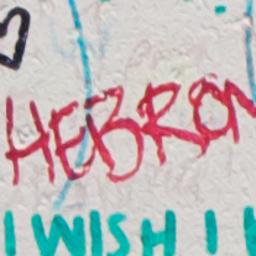 HEBRON
I WISH I